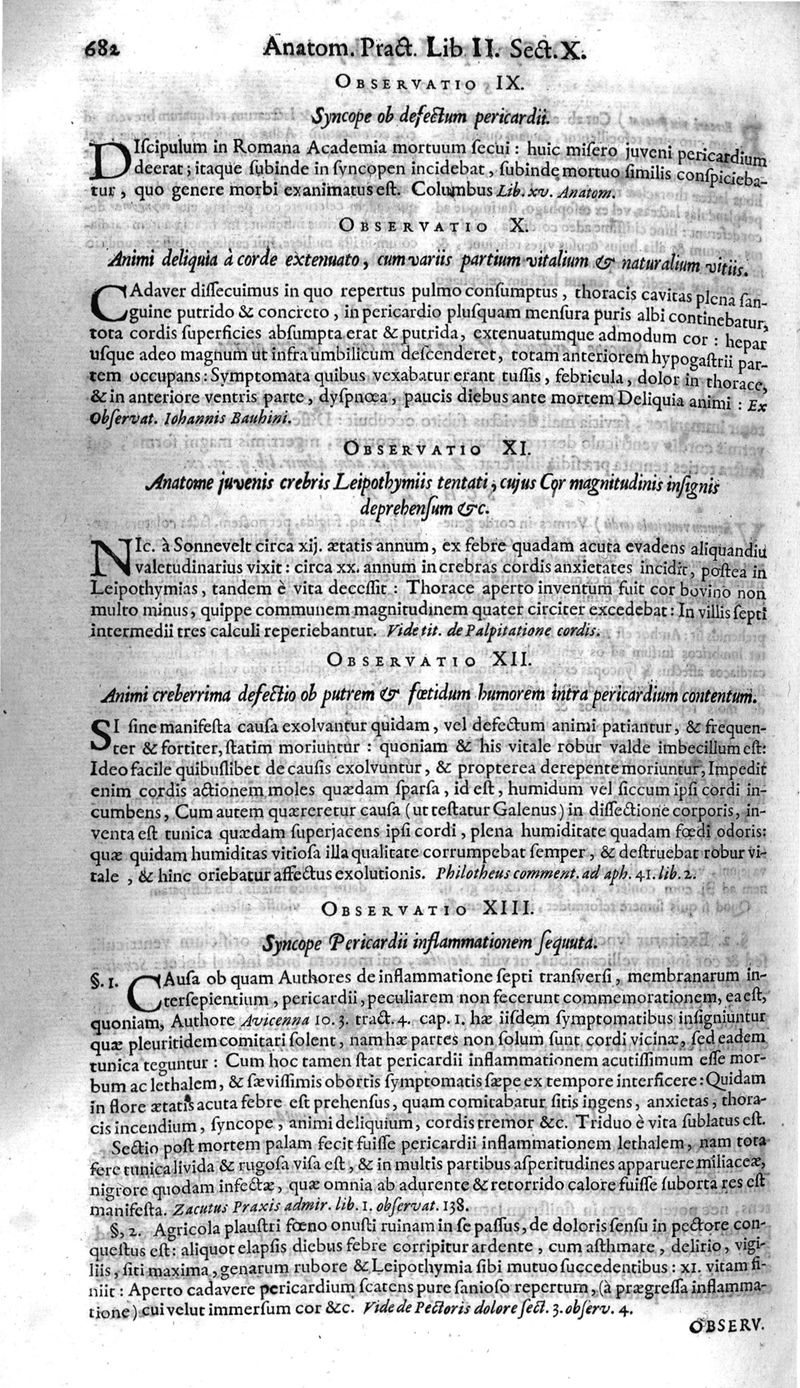 682 Anatom. Pract. Lib II. Sect. X.
OBSERVATIO IX.
Syncope ob defectum pericardii.
DIſcipulum in Romana Academia mortuum ſecui : huic miſero juveni pericardium
deerat ; itaque ſubinde in ſyncopen incidebat, ſubinde mortuo ſimilis conſpicieba-
tur, quo genere morbi exanimatus eſt. Columbus Lib. xv. Anatom.
OBSERVATIO X.
Animi deliquia à corde extenuato, cum variis partium vitalium & naturalium vitiis.
CAdaver diſſecuimus in quo repertus pulmo conſumptus, thoracis cavitas plena ſan-
guine putrido & concreto, in pericardio pluſquam menſura puris albi continebatur,
tota cordis ſuperficies abſumpta erat & putrida, extenuatumque admodum cor : hepar
uſque adeo magnum ut infra umbilicum deſcenderet, totam anteriorem hypogaſtrii par-
tem occupans : Symptomata quibus vexabatur erant tuſſis, febricula, dolor in thorace,
& in anteriore ventris parte, dyſpnœa, paucis diebus ante mortem Deliquia animi : Ex
Obſervat. Iohannis Bauhini.
OBSERVATIO XI.
Anatome juvenis crebris Leipothymiis tentati, cujus Cor magnitudinis inſignis
deprehenſum &c.
NIc. à Sonnevelt circa xij. ætatis annum, ex febre quadam acuta evadens aliquandiu
valetudinarius vixit : circa xx. annum in crebras cordis anxietates incidit, poſtea in
Leipothymias, tandem è vita deceſſit : Thorace aperto inventum fuit cor bovino non
multo minus, quippe communem magnitudinem quater circiter excedebat : In villis ſepti
intermedii tres calculi reperiebantur. Vide tit. de Palpitatione cordis.
OBSERVATIO XII.
Animi creberrima defectio ob putrem & fœtidum humorem intra pericardium contentum.
SI ſine manifeſta cauſa exolvantur quidam, vel defectum animi patiantur, & frequen-
ter & fortiter, ſtatim moriuntur : quoniam & his vitale robur valde imbecillum eſt:
Ideo facile quibuſlibet de cauſis exolvuntur, & propterea derepente moriuntur, Impedit
enim cordis actionem moles quædam ſparſa, id eſt, humidum vel ſiccum ipſi cordi in-
cumbens, Cum autem quæreretur cauſa (ut teſtatur Galenus) in diſſectione corporis, in-
venta eſt tunica quædam ſuperjacens ipſi cordi, plena humiditate quadam fœdi odoris:
quæ quidam humiditas vitioſa illa qualitate corrumpebat ſemper, & deſtruebat robur vi-
tale, & hinc oriebatur affectus exolutionis. Philotheus comment. ad aph. 41. lib. 2.
OBSERVATIO XIII.
Syncope Pericardii inflammationem ſequuta.
§. 1. CAuſa ob quam Authores de inflammatione ſepti tranſverſi, membranarum in-
terſepientium, pericardii, peculiarem non fecerunt commemorationem, ea eſt,
quoniam, Authore Avicenna 10. 3. tract. 4. cap. 1. hæ iiſdem ſymptomatibus inſigniuntur
quæ pleuritidem comitari ſolent, nam hæ partes non ſolum ſunt cordi vicinæ, ſed eadem
tunica teguntur : Cum hoc tamen ſtat pericardii inflammationem acutiſſimum eſſe mor-
bum ac lethalem, & ſæviſſimis obortis ſymptomatis ſæpe ex tempore interficere : Quidam
in flore ætatis acuta febre eſt prehenſus, quam comitabatur ſitis ingens, anxietas, thora-
cis incendium, ſyncope, animi deliquium, cordis tremor &c. Triduo è vita ſublatus eſt.
Sectio poſt mortem palam fecit fuiſſe pericardii inflammationem lethalem, nam tota
fere tunica livida & rugoſa viſa eſt, & in multis partibus aſperitudines apparuere miliaceæ,
nigrore quodam infectæ, quæ omnia ab adurente & retorrido calore fuiſſe ſuborta res eſt
manifeſta. Zacutus Praxis admir. lib. 1. obſervat. 138.
§, 2. Agricola plauſtri fœno onuſti ruinam in ſe paſſus, de doloris ſenſu in pectore con-
queſtus eſt : aliquot elapſis diebus febre corripitur ardente, cum aſthmate, delirio, vigi-
liis, ſiti maxima, genarum rubore & Leipothymia ſibi mutuo ſuccedentibus : xi. vitam fi-
niit : Aperto cadavere pericardium ſcatens pure ſanioſo repertum, (à prægreſſa inflamma-
tione) cui velut immerſum cor &c. Vide de Pectoris dolore ſect. 3. obſerv. 4.
OBSERV.